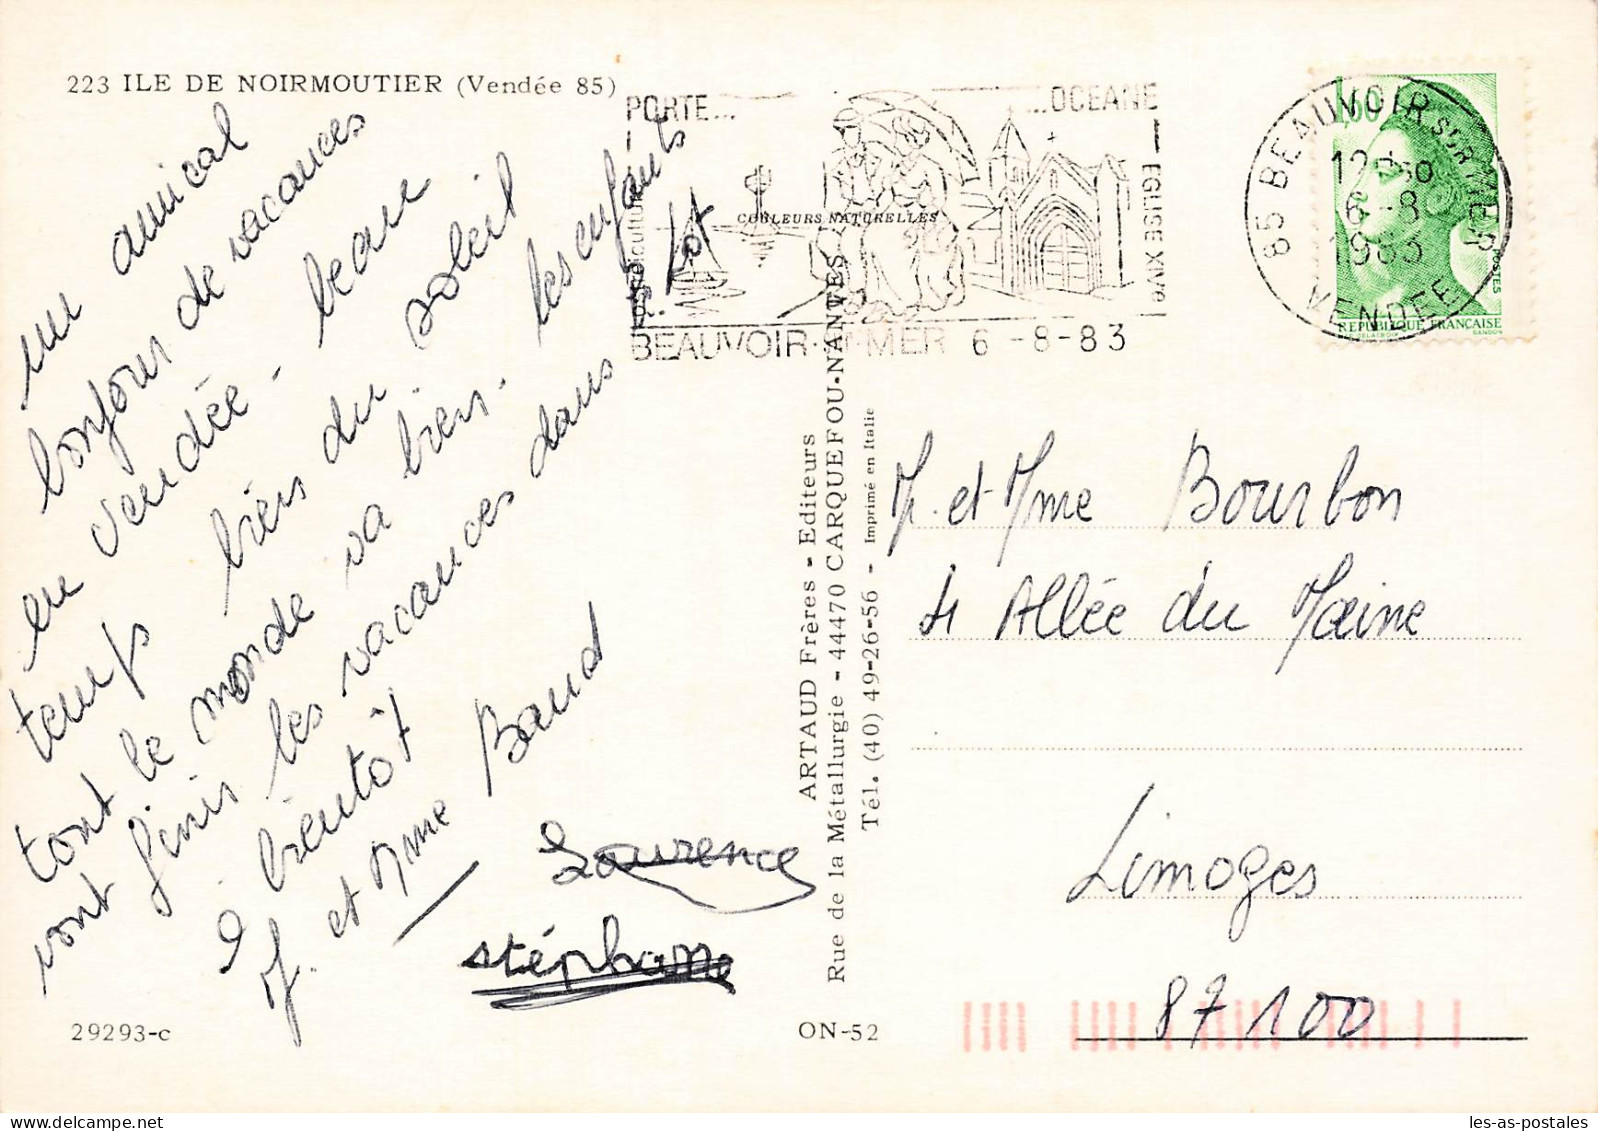 223 ILE DE NOIRMOUTIER (Vendée 85)
un amical
bonjour de vacances
en vendée - beau
temps bien du soleil
tout le monde va bien. les enfants
vont finir les vacances dans le Lot
à bientôt
M. et Mme Baud
Laurence
stéphane
29293-c
ON-52
ARTAUD Frères - Editeurs
Rue de la Métallurgie - 44470 CARQUEFOU-NANTES
Tél. (40) 49-26-56 - Imprimé en Italie
COULEURS NATURELLES
PORTE...
...OCEANE
EGLISE XIVe
BEAUVOIR MER 6 -8-83
85 BEAUVOIR SUR MER
6 -8
1983
VENDEE
1,60
POSTES
REPUBLIQUE FRANÇAISE
GANDON
M. et Mme Bourbon
4 Allée du Maine
Limoges
87100
les-as-postales